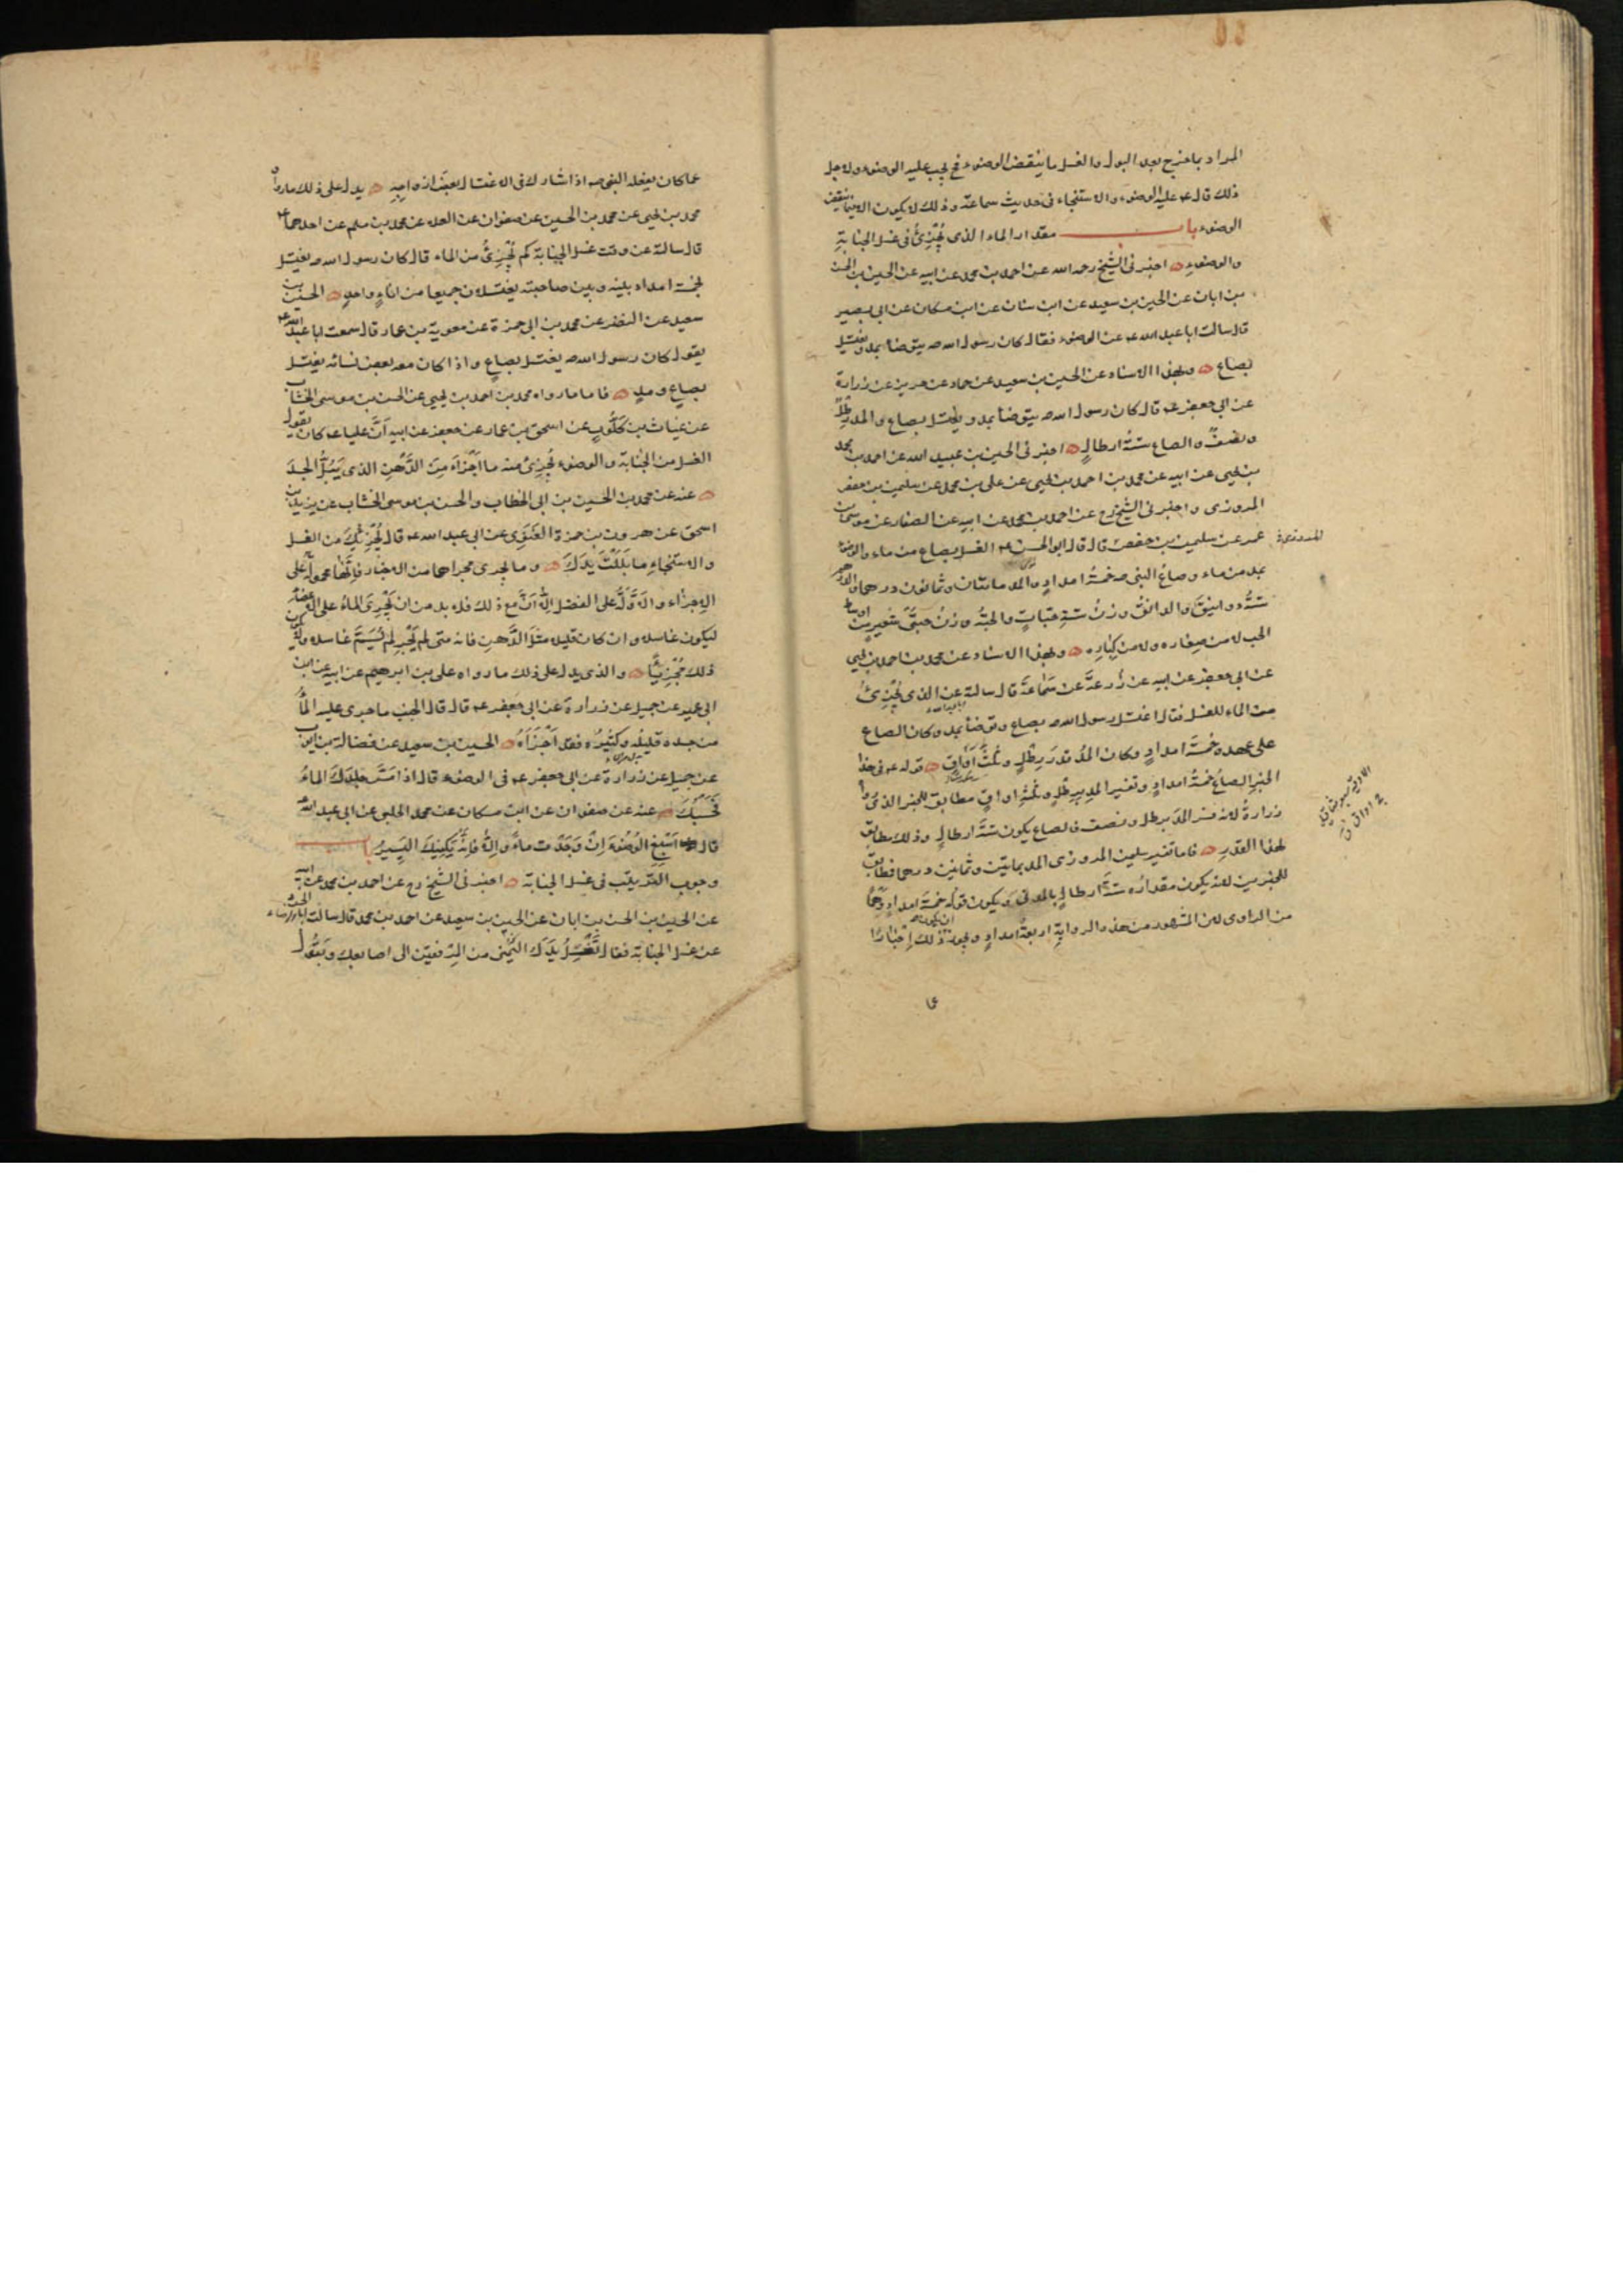 المراد بما خرج بعد البول والغسل ما ينقض الوضوء فح يجب عليه الوضوء ولاجل
ذلك قال عم عليه الوضوء والاستنجاء في حديث سماعة وذلك لا يكون الا فيما ينقض
الوضوء باب مقدار الماء الذي يُجْزِئُ في غسل الجنابةِ
والوضوءِ اخبرني الشيخ رحمه الله عن احمد بن محمد عن ابيه عن الحسين بن الحسن
بن ابان عن الحسين بن سعيد عن ابن سنان عن ابن مسكان عن ابي بصير
قال سالت ابا عبد الله عم عن الوضوء فقال كان رسول الله ص يتوضأ بمد ويغتسل
بصاع وبهذا الاسناد عن الحسين بن سعيد عن حماد عن حريز عن زرارة
عن ابي جعفر عم قال كان رسول الله ص يتوضأ بمد ويغتسل بصاع والمد رطلٌ
ونصفٌ والصاع ستةُ ارطالٍ اخبرني الحسين بن عبيد الله عن احمد بن محمد
بن يحيى عن ابيه عن محمد بن احمد بن يحيى عن علي بن محمد عن سليمن بن حفص
المروزي واخبرني الشيخ رح عن احمد بن محمد عن ابيه عن الصفار عن موسى بن
عمر عن سليمن بن حفص قال قال ابو الحسن عم الغسل بصاع من ماء والوضوء
المروزي
بمد من ماء وصاعُ النبي ص خمسةُ امدادٍ والمد مائتان وثمانون درهما والدرهم
ستَّةُ دوانيقَ والدانقُ وزنُ ستةِ حبّاتٍ والحبّةُ وزنُ حبّتَيْ شعيرٍ من اوساط
الحب لا من صِغاره ولا من كِبارِه وبهذا الاسناد عن محمد بن احمد بن يحيى
عن ابي جعفر عن ابيه عن زُرعةَ عن سَماعةَ قال سالته عن الذي يُجْزِئُ
من الماء للغسل فقال اغتسل رسول الله ص بصاع وتوضأ بمد وكان الصاع
على عهده خمسةَ امدادٍ وكان المُدُّ قدرَ رِطْلٍ وثلثَ اَواقٍ قوله عم في هذا
الخبرِ الصاعُ خمسةُ امدادٍ وتفسير المدِ برِطْلٍ وثلثةِ اواقٍ مطابق للخبر الذي رواه
زرارةُ لانه فسر المدَّ برطل ونصف فالصاع يكون ستَّةَ ارطالٍ وذلك مطابق
لهذا القدرِ فاما تفسير سليمن المروزي المد بمايتين وثمانين درهما فطابق
للخبرين لانه يكون مقدارُه ستَّةَ ارطالٍ بالمدني ويكون قولُه خمسةَ امدادٍ وَهْمًا
من الراوي لان المشهور من هذه الروايةِ اربعةُ امدادٍ ويجوز ان يكون ذلك اِخْبارًا
عما
عما كان يفعله النبي ص اذا شارك في الاغتسال بعضَ ازواجِهِ يدل على ذلك ما رواه
محمد بن يحيى عن محمد بن الحسين عن صفوان عن العلا عن محمد بن مسلم عن احدهما عم
قال سالته عن وقت غسل الجنابة كم يُجْزِئُ من الماء قال كان رسول الله ص يغتسل
بخمسة امداد بينه وبين صاحبته يغتسلان جميعا من اناءٍ واحدٍ الحسين بن
سعيد عن النضر عن محمد بن ابي حمزة عن معوية بن عمار قال سمعت ابا عبد الله عم
يقول كان رسول الله ص يغتسل بصاعٍ واذا كان معه بعض نسائه يغتسل
بصاعٍ ومدٍ فاما ما رواه محمد بن احمد بن يحيى عن الحسن بن موسى الخشاب
عن غياث بن كَلّوبٍ عن اسحق بن عمار عن جعفر عن ابيه اَنَّ عليا عم كان يقول
الغسل من الجنابة والوضوء يُجزئ منه ما اَجْزَأَ مِنَ الدُّهْنِ الذي يَبُلُّ الجسدَ
عنه عن محمد بن الحسين بن ابي الخطاب والحسن بن موسى الخشاب عن يزيد بن
اسحق عن هرون بن حمزة الغَنَوِي عن ابي عبد الله عم قال يُجْزِئُكَ من الغسل
والاستنجاءِ ما بَلَلْتَ يدَكَ وما يجري مجراهما من الاخبار فإنّها محمولة على
الاِجزاء والاَوَّلةُ على الفضل اِلّا اَنَّ مع ذلك فلا بد من ان يَجْرِيَ الماءُ على الاعضاء
ليكون غاسلا وان كان قليلا مثلَ الدُّهنِ فانه متى لم يَجْرِ لم يُسَمَّ غاسلا ولا يكون
ذلك مُجْزِئًا والذي يدل على ذلك ما رواه علي بن ابرهيم عن ابيه عن ابن
ابي عمير عن جميل عن زرارة عن ابي جعفر عم قال قال الجنب ما جرى عليه الماءُ
من جسده قليلُه وكثيرُه فقد اَجْزَأَهُ الحسين بن سعيد عن فضالة بن ايوب
عن جميل عن زرارة عن ابي جعفر عم في الوضوء قال اذا مَسَّ جِلْدَكَ الماءُ
فَحَسْبُكَ عنه عن صفوان عن ابن مسكان عن محمد الحلبي عن ابي عبد الله عم
قال اَسْبِغِ الوُضُوءَ اِنْ وَجَدْتَ ماءً واِلّا فاِنَّه يَكفِيكَ اليَسيرُ باب
وجوب الترتيب في غسل الجنابة اخبرني الشيخ رح عن احمد بن محمد عن ابيه
عن الحسين بن الحسن بن ابان عن الحسين بن سعيد عن احمد بن محمد قال سالت ابا الحسن الرضا ع
عن غسل الجنابة فقال تَغْسِلُ يَدَكَ اليُمْنى من المِرْفقَيْن الى اصابعك وتَبُولُ